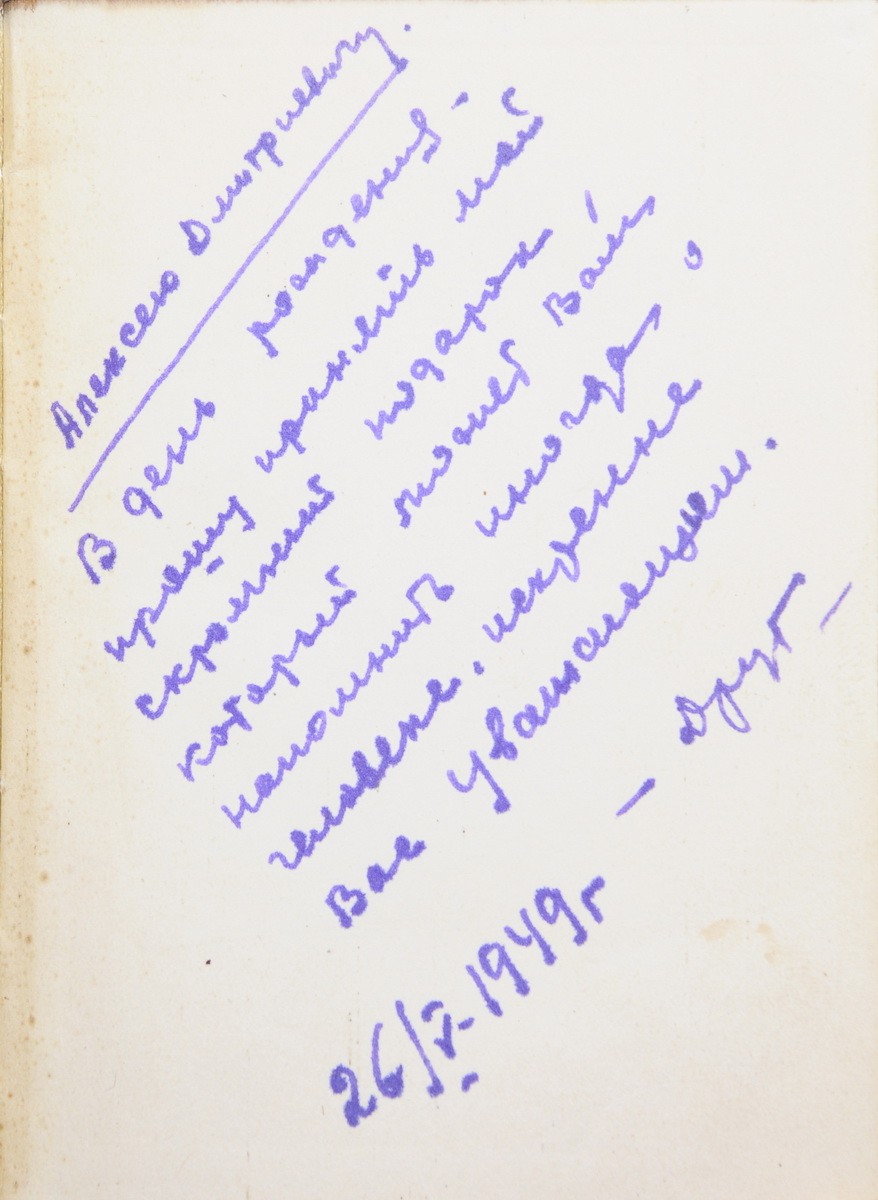 Алексею Дмитриевичу.
В день рождения -
прошу принять мой
скромный подарок
который может Вам,
напомнить иногда, о
человеке, искренне
Вас уважающем.
— Друг —
26/V-1949г